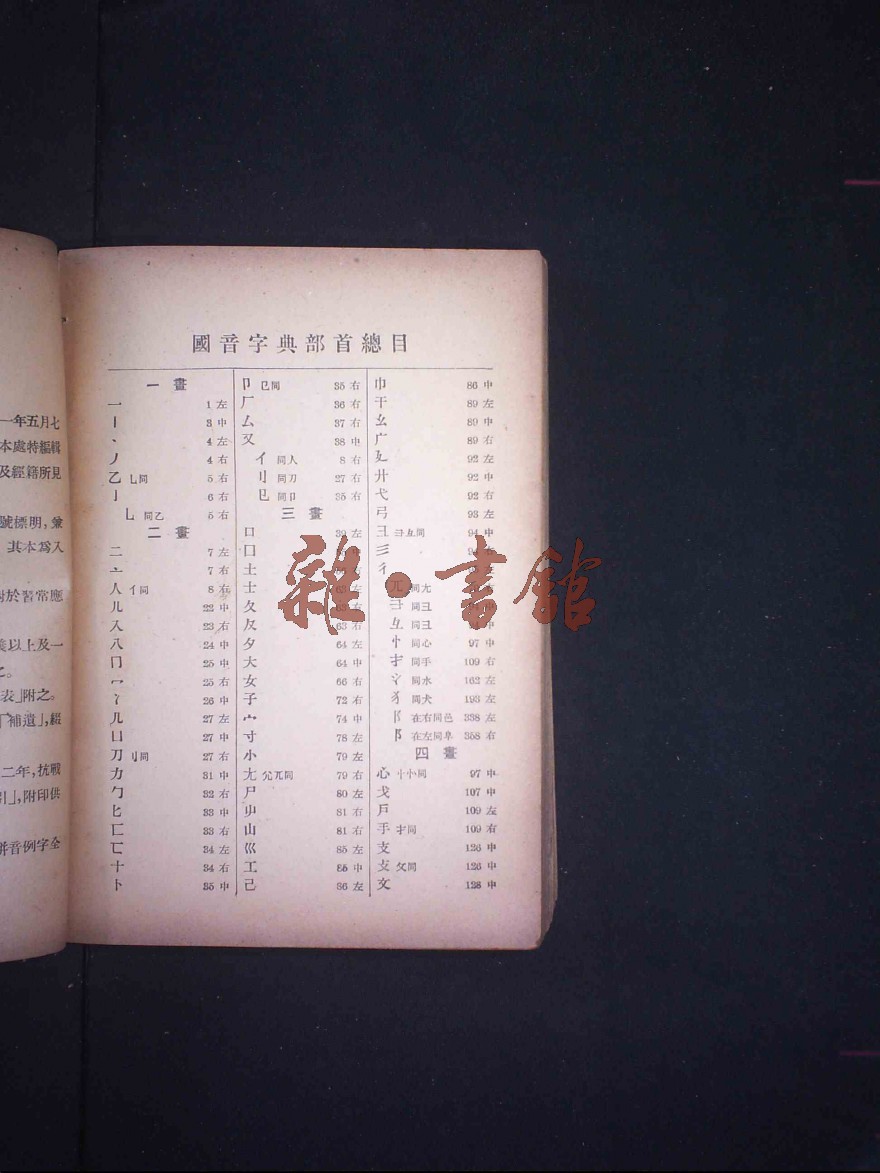 一年五月七
本處特編輯
及經籍所見
號標明，兼
其本為入
對於習常應
以上及一
之。
表」附之。
「補遺」，綴
二年，抗戰
引」，附印供
拼音例字全
國音字典部首總目
一畫
一 1左
丨 3中
丶 4左
丿 4右
乙 乚同 5右
亅 6右
乚 同乙 5右
二畫
二 7左
亠 7右
人 亻同 8右
儿 22中
入 23右
八 24中
冂 25中
冖 25右
冫 26中
几 27左
凵 27中
刀 刂同 27右
力 31中
勹 32右
匕 33中
匚 33右
匸 34左
十 34右
卜 35中
卩 㔾同 35右
厂 36右
厶 37右
又 38中
亻 同人 8右
刂 同刀 27右
㔾 同卩 35右
三畫
口 39左
囗
土
士 62左
夂 63右
夊 63右
夕 64左
大 64中
女 66右
子 72右
宀 74中
寸 78左
小 79左
尢 尣兀同 79右
尸 80左
屮 81右
山 81右
巛 85左
工 85中
己 86左
巾 86中
干 89左
幺 89中
广 89右
廴 92左
廾 92中
弋 92右
弓 93左
彐 彑同 94中
彡
彳
兀 同尢
彐
彑
忄 同心 97中
扌 同手 109右
氵 同水 162左
犭 同犬 193左
阝 在右同邑 338左
阝 在左同阜 358右
四畫
心 忄㣺同 97中
戈 107中
戶 109左
手 扌同 109右
支 126中
攴 攵同 126中
文 128中
雜·書館